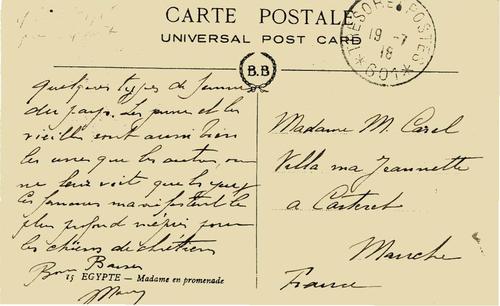 CARTE POSTALE
UNIVERSAL POST CARD
TRESOR ET POSTES
19-7
18
*601*
B.B
Quelques types de femmes
du pays. Les jeunes et les
vieilles sont aussi bien
les unes que les autres, on
ne leur voit que les yeux
les femmes manifestent le
plus profond mépris pour
les chiens de chrétiens
Bons Baisers
15 EGYPTE — Madame en promenade
Madame M. Carel
Villa ma Jeannette
a Carteret
Manche
France